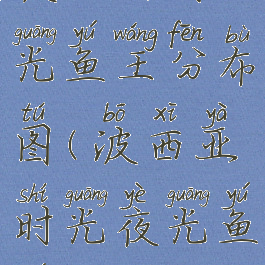 guāng yú wáng fēn bù
光鱼王分布
tú bō xī yà
图(波西亚
shí guāng yè guāng yú
时光夜光鱼